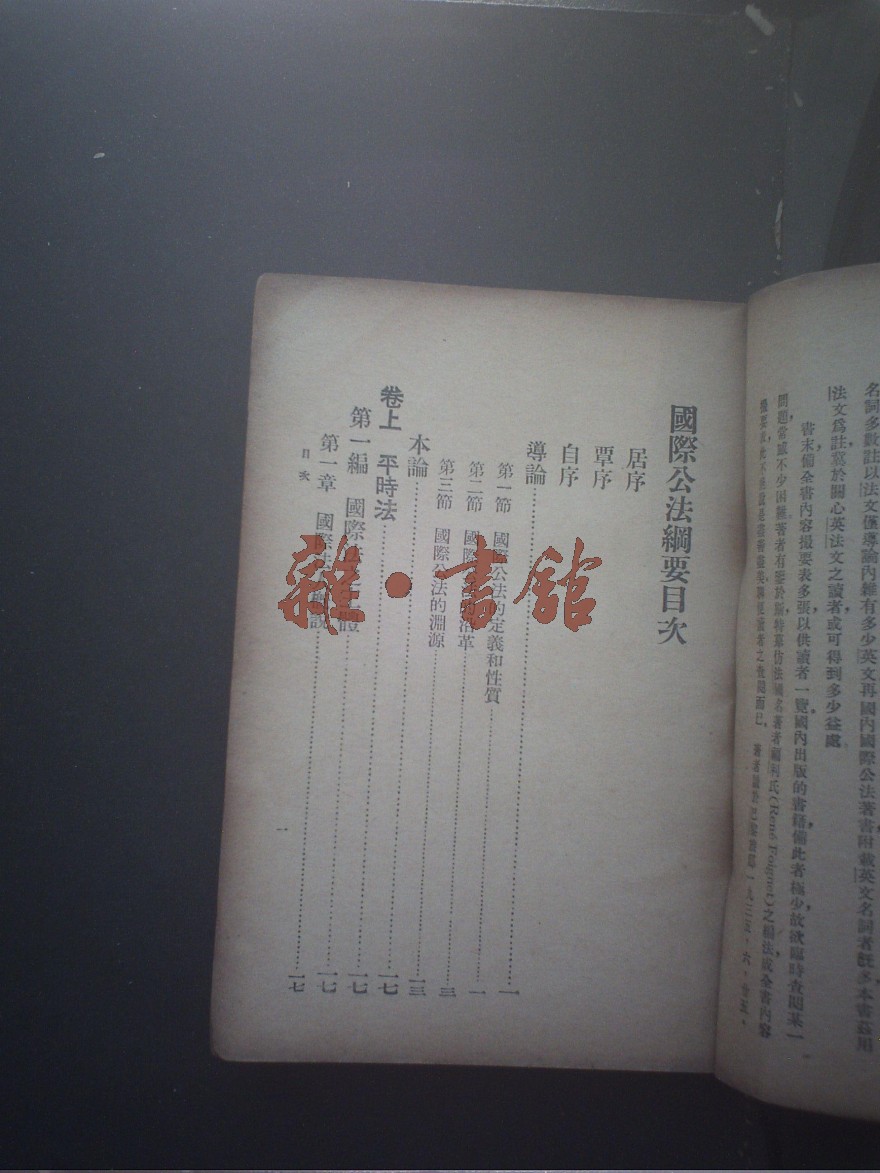 名詞多數註以法文僅導論內雜有多少英文再國內國際公法著書附載英文名詞者旣多本書茲用
法文爲註冀於關心英法文之讀者或可得到多少益處
書末備全書內容撮要表多張以供讀者一覽國內出版的書籍備此者極少故欲臨時查閱某一
問題常感不少困難著者有鑒於斯特草仿法國名著者福利氏(René Foignet)之編法成全書內容
撮要
國際公法綱要目次
居序
覃序
自序
導論 一
第一節 國際公法的定義和性質 一
第二節 國際 沿革
第三節 國際公法的淵源
本論 一三
卷上 平時法 一七
第一編 國際法 主體 一七
第一章 國際法 槪說 一七
目次
一
雜·書館